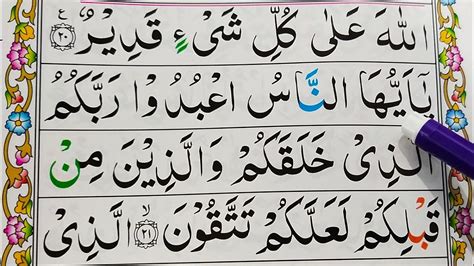 اللّٰهَ عَلٰى كُلِّ شَىْءٍ قَدِيْرٌ ﴿٢٠﴾ ع
يٰۤاَيُّهَا النَّاسُ اعْبُدُوْا رَبَّكُمُ
الَّذِىْ خَلَقَكُمْ وَالَّذِيْنَ مِنْ
قَبْلِكُمْ لَعَلَّكُمْ تَتَّقُوْنَ ﴿٢١﴾ ۙ الَّذِىْ